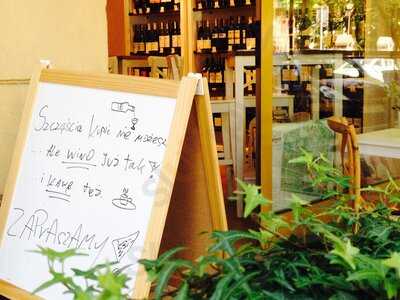 Szczęścia kupić nie możesz
... Ale WINO już tak
i KAWĘ też.
ZAPRASZAMY